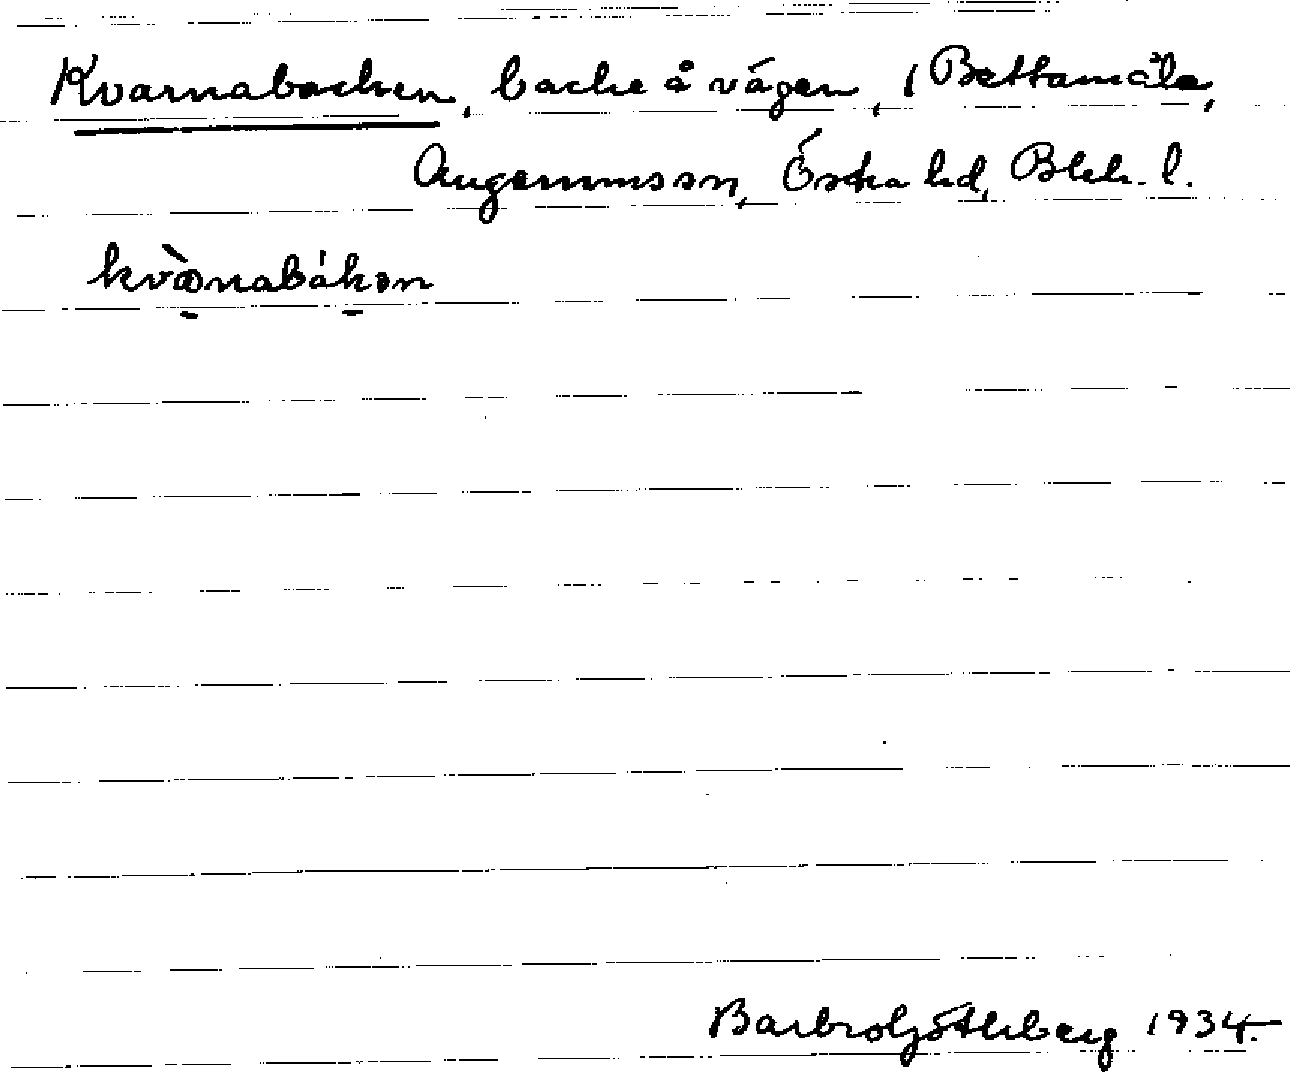 Kvarnabacken, backe å vägen, i Bettamåla,
Augerumssn, Östra hd, Blek. l.
kvànabákən
Barbro Götherberg 1934.